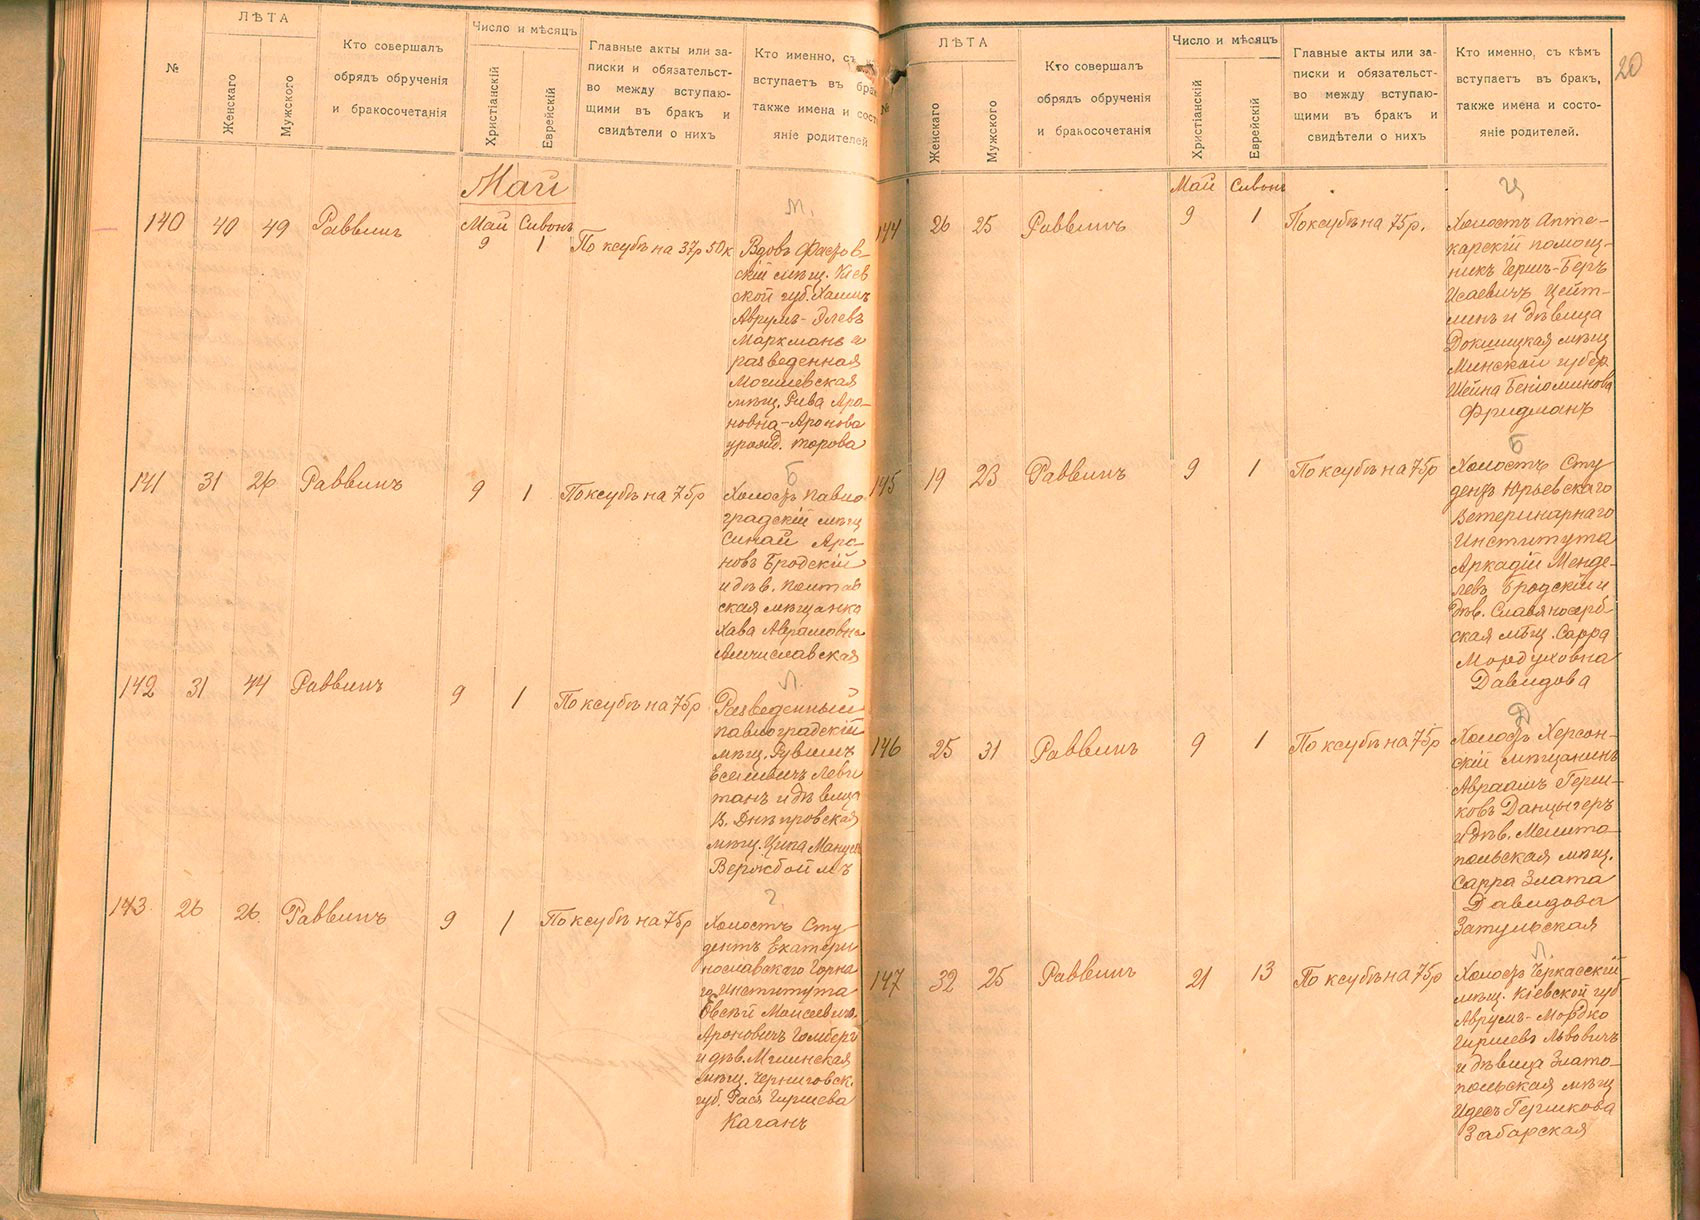 №
ЛѢТА
Женскаго
Мужского
Кто совершалъ
обрядъ обрученія
и бракосочетанія
Число и мѣсяцъ
Христіанскій
Еврейскій
Главные акты или за-
писки и обязательст-
во между вступаю-
щими въ бракъ и
свидѣтели о нихъ
Кто именно, съ
вступаетъ въ
также имена и
яніе родителей
Май
140 40 49 Раввинъ
Май Сивонъ
9 1
По ксубѣ на 37р 50к
М.
Вдовъ Фастов-
скій мѣщ. Кіев
ской губ. Хаимъ
Аврумъ-
Маркманъ и
разведенная
Могилевская
мѣщ. Рива Аро-
новна-Аронова
урожд. Торова
141 31 26 Раввинъ 9 1 По ксубѣ на 75р
Б
Холостъ Павло-
градскій мѣщ
Синай Аро-
новъ Бродскій
и дѣв. Полтав
ская мѣщанка
Хава Аврамовна
142 31 44 Раввинъ 9 1 По ксубѣ на 75р
Л.
Разведенный
павлоградскій
мѣщ. Рувинъ
Леви
танъ и дѣвица
В. Днѣпровская
мѣщ. Ципа
Вержбоймъ
143 26 26 Раввинъ 9 1 По ксубѣ на 75р
Г.
Холостъ Сту
дентъ Екатери
нославскаго Горна
го Института
Овсѣй Моисеевичъ
Ароновичъ Гомбергъ
и дѣв. Мглинская
мѣщ. Черниговск.
губ. Рася Гиршева
Каганъ
20
№
ЛѢТА
Женскаго
Мужского
Кто совершалъ
обрядъ обрученія
и бракосочетанія
Число и мѣсяцъ
Христіанскій
Еврейскій
Главные акты или за-
писки и обязательст-
во между вступаю-
щими въ бракъ и
свидѣтели о нихъ
Кто именно, съ кѣмъ
вступаетъ въ бракъ,
также имена и состо-
яніе родителей.
Май Сивонъ
144 26 25 Раввинъ 9 1 По ксубѣ на 75р.
Ц
Холостъ Апте-
карскій помощ-
никъ Гершъ-Беръ
Исаевичъ Цейт-
линъ и дѣвица
Докшицкая мѣщ
Минской губер.
Шейна Беніоминова
Фридманъ
145 19 23 Раввинъ 9 1 По ксубѣ на 75р
Б
Холостъ Сту
дентъ Юрьевскаго
Ветеринарнаго
Института
Аркадій Менде-
левъ Бродскій и
дѣв. Славяносерб
ская мѣщ. Сарра
Мордуховна
Давидова
146 25 31 Раввинъ 9 1 По ксубѣ на 75р
Д
Холостъ Херсон-
скій мѣщанинъ
Авраамъ Герш-
ковъ Данцигеръ
и дѣв. Мелито
польская мѣщ.
Сарра Злата
Давидова
Затульская
147 32 25 Раввинъ 21 13 По ксубѣ на 75р
Л.
Холостъ Черкасскій
мѣщ. Кіевской губ
Аврумъ-Мордко
Гиршевъ Львовичъ
и дѣвица Злато-
польская мѣщ
Идесъ Гершкова
Забарская